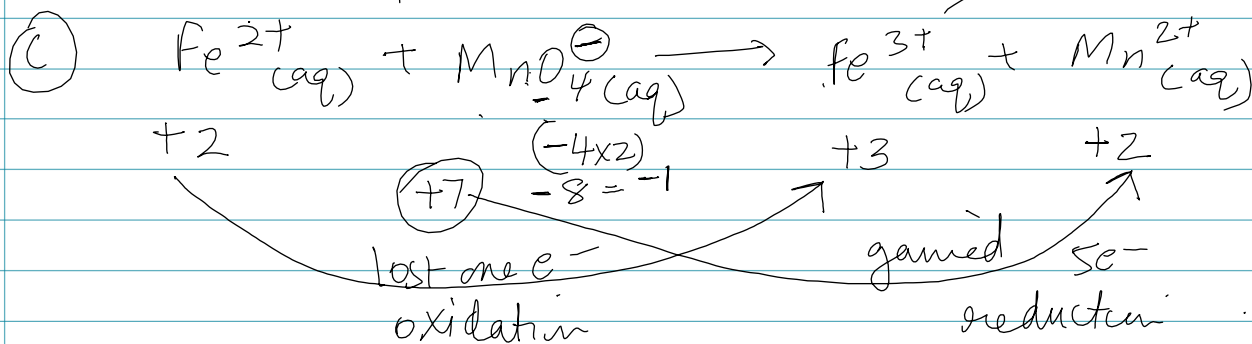 (C) Fe²⁺(aq) + MnO₄⁻(aq) ⟶ Fe³⁺(aq) + Mn²⁺(aq)
+2 (-4x2) +3 +2
+7 -8 = -1
lost one e⁻ gained 5e⁻
oxidation reduction